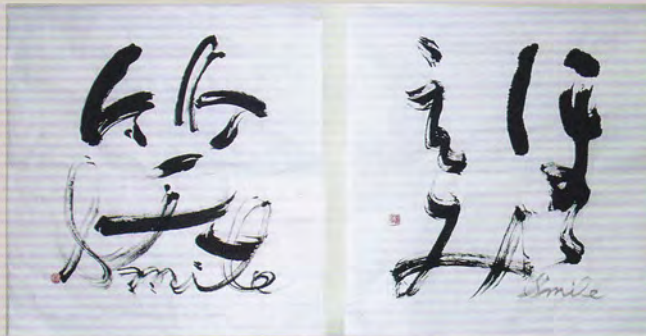 笑
Smile
ほほ
えみ
Smile